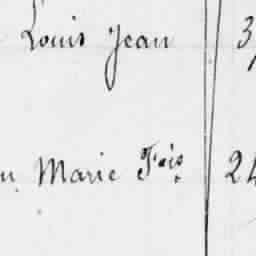 Louis Jean 3
Marie Fois 24